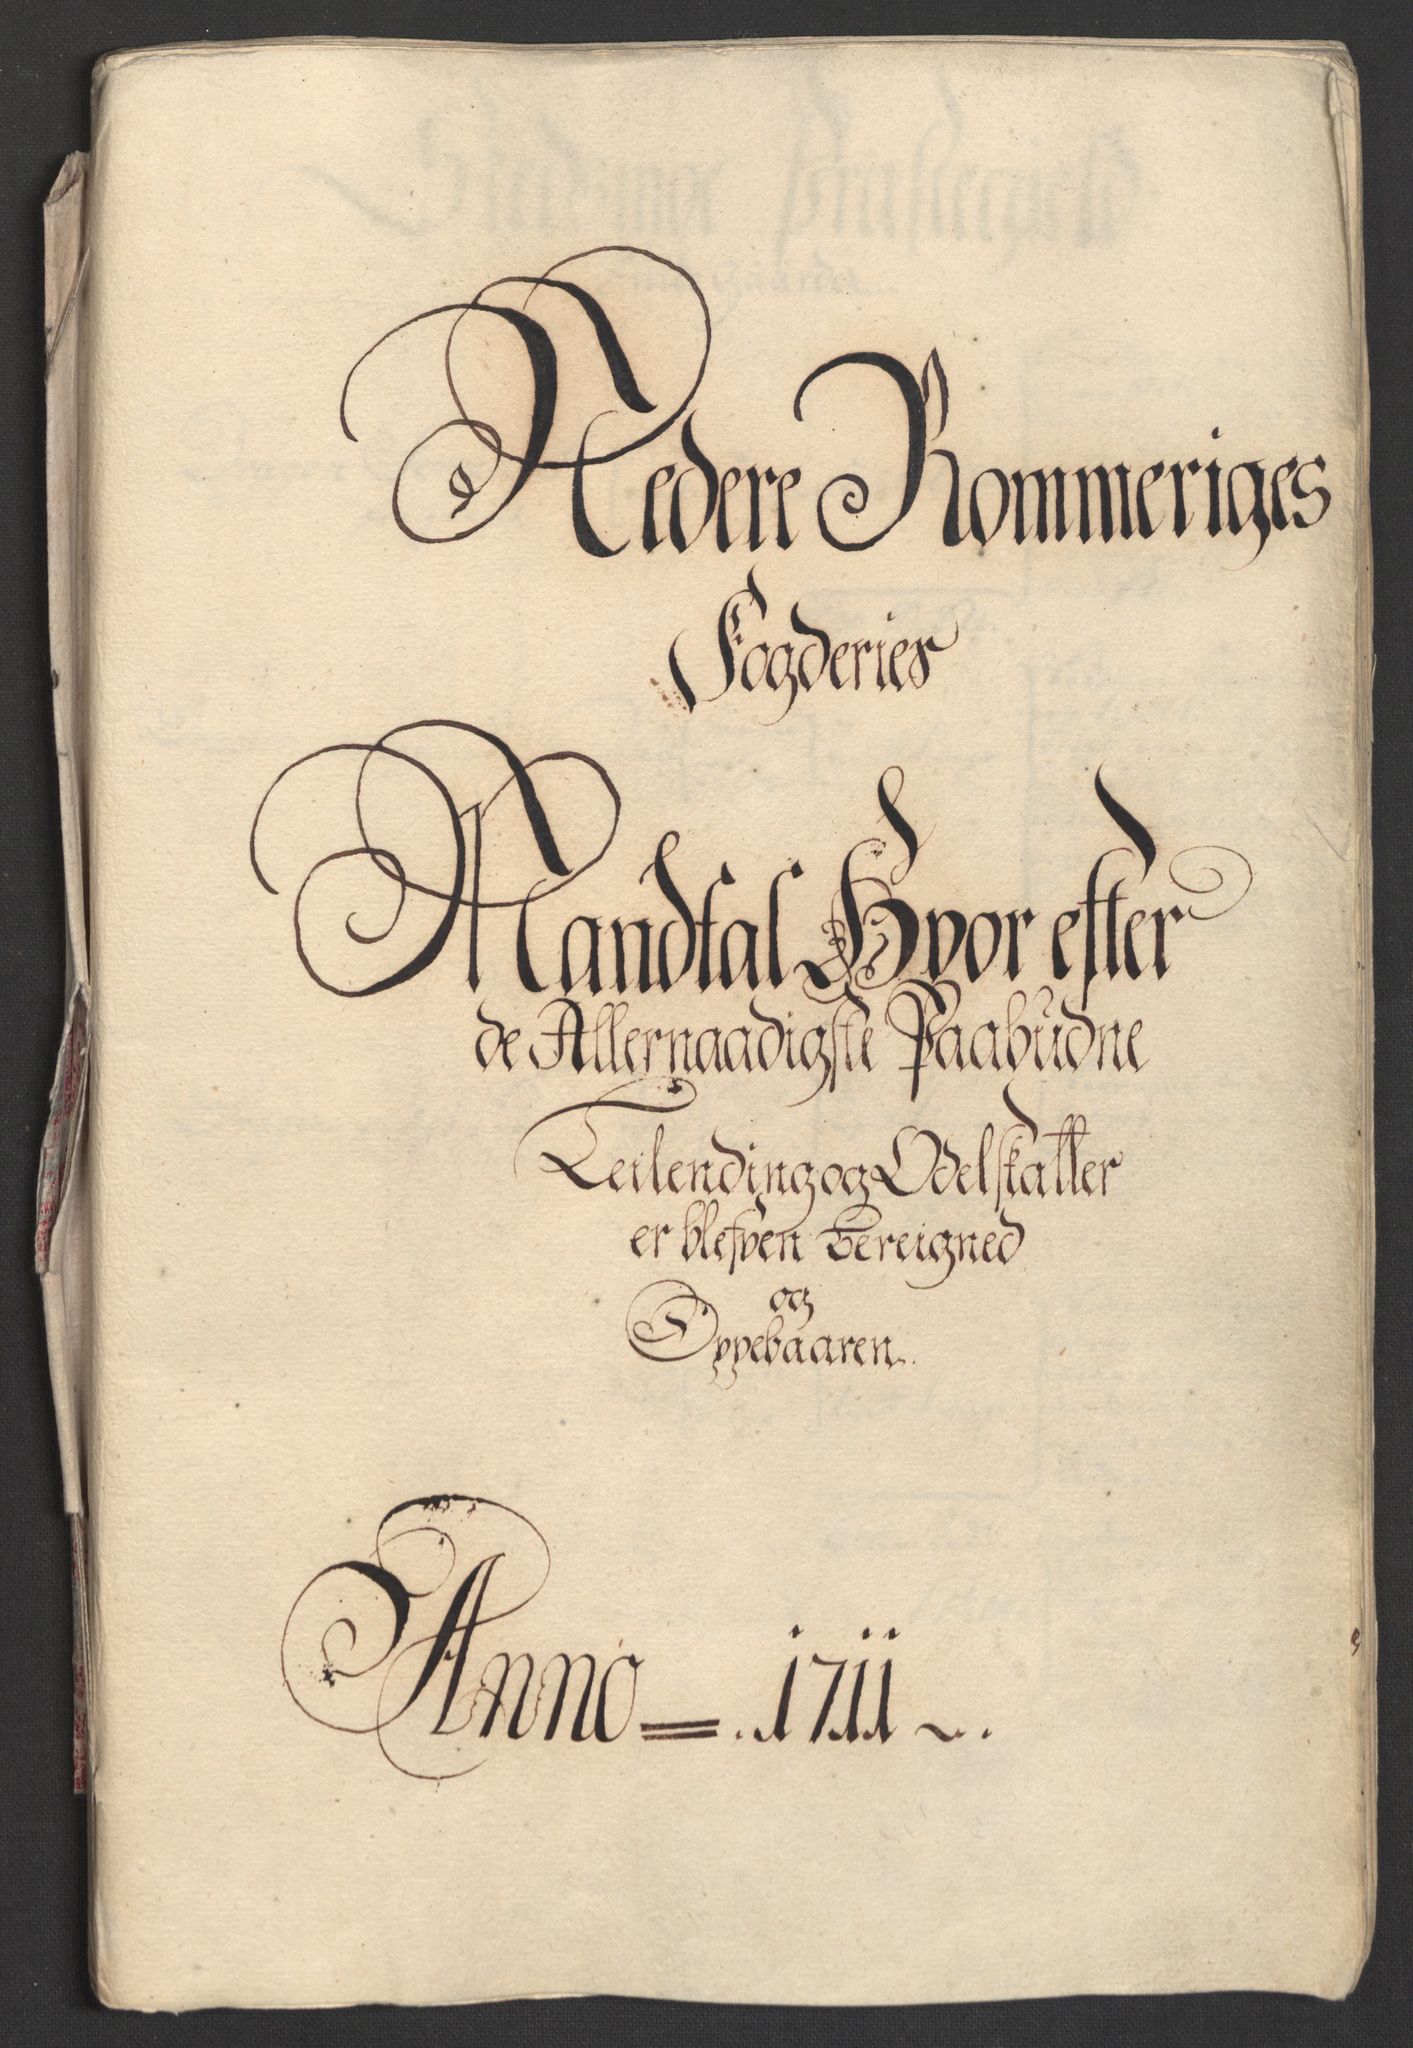 Nedere Rommeriges
Fogderies
Mandtal Hvor efter
de Allernaadigste Paabudne
Leilending og Odelskatter
er blefven bereigned
og
Oppebaaren.
Anno = . 1711 ~ .